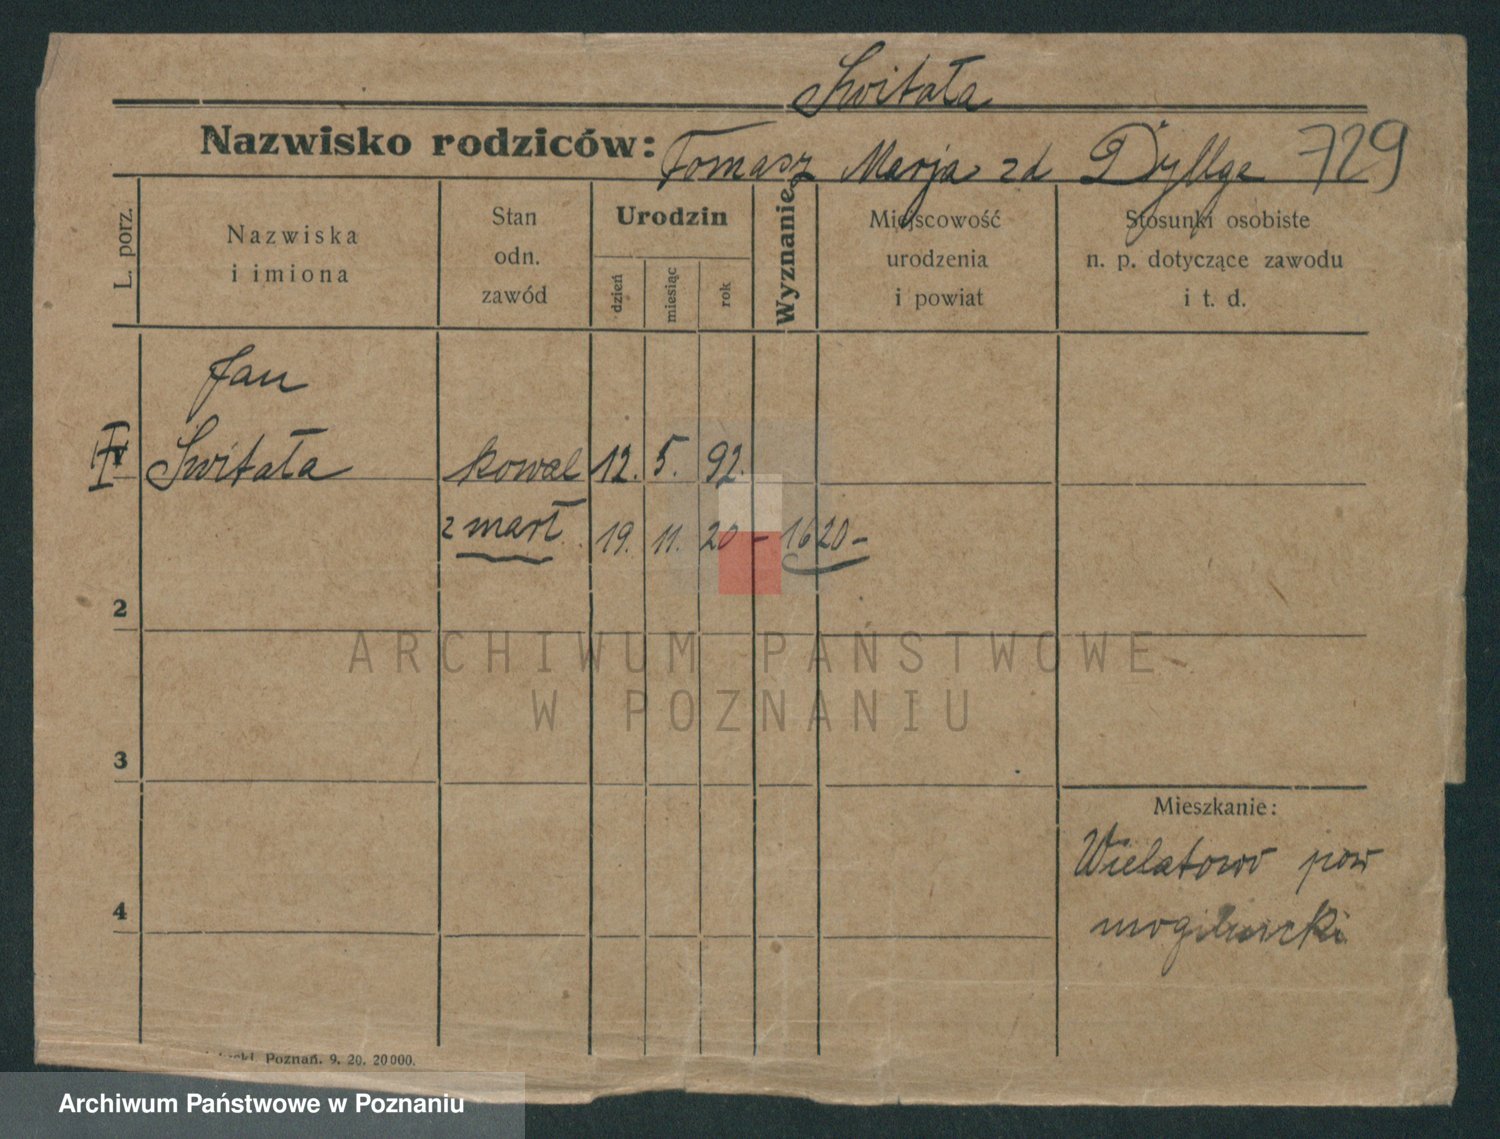 Switała
Nazwisko rodziców: Tomasz Marja zd Dyllge 729
L. porz.
Nazwiska
i imiona
Stan
odn.
zawód
Urodzin
dzień
miesiąc
rok
Wyznanie
Miejscowość
urodzenia
i powiat
Stosunki osobiste
n. p. dotyczące zawodu
i t. d.
Jan
Switała kowal 12. 5. 92.
zmarł 19. 11. 20 - 1620 -
2
3
4
Mieszkanie:
Wielatowo pow
mogilnicki
Poznań. 9. 20. 20 000.
ARCHIWUM PAŃSTWOWE
W POZNANIU
Archiwum Państwowe w Poznaniu